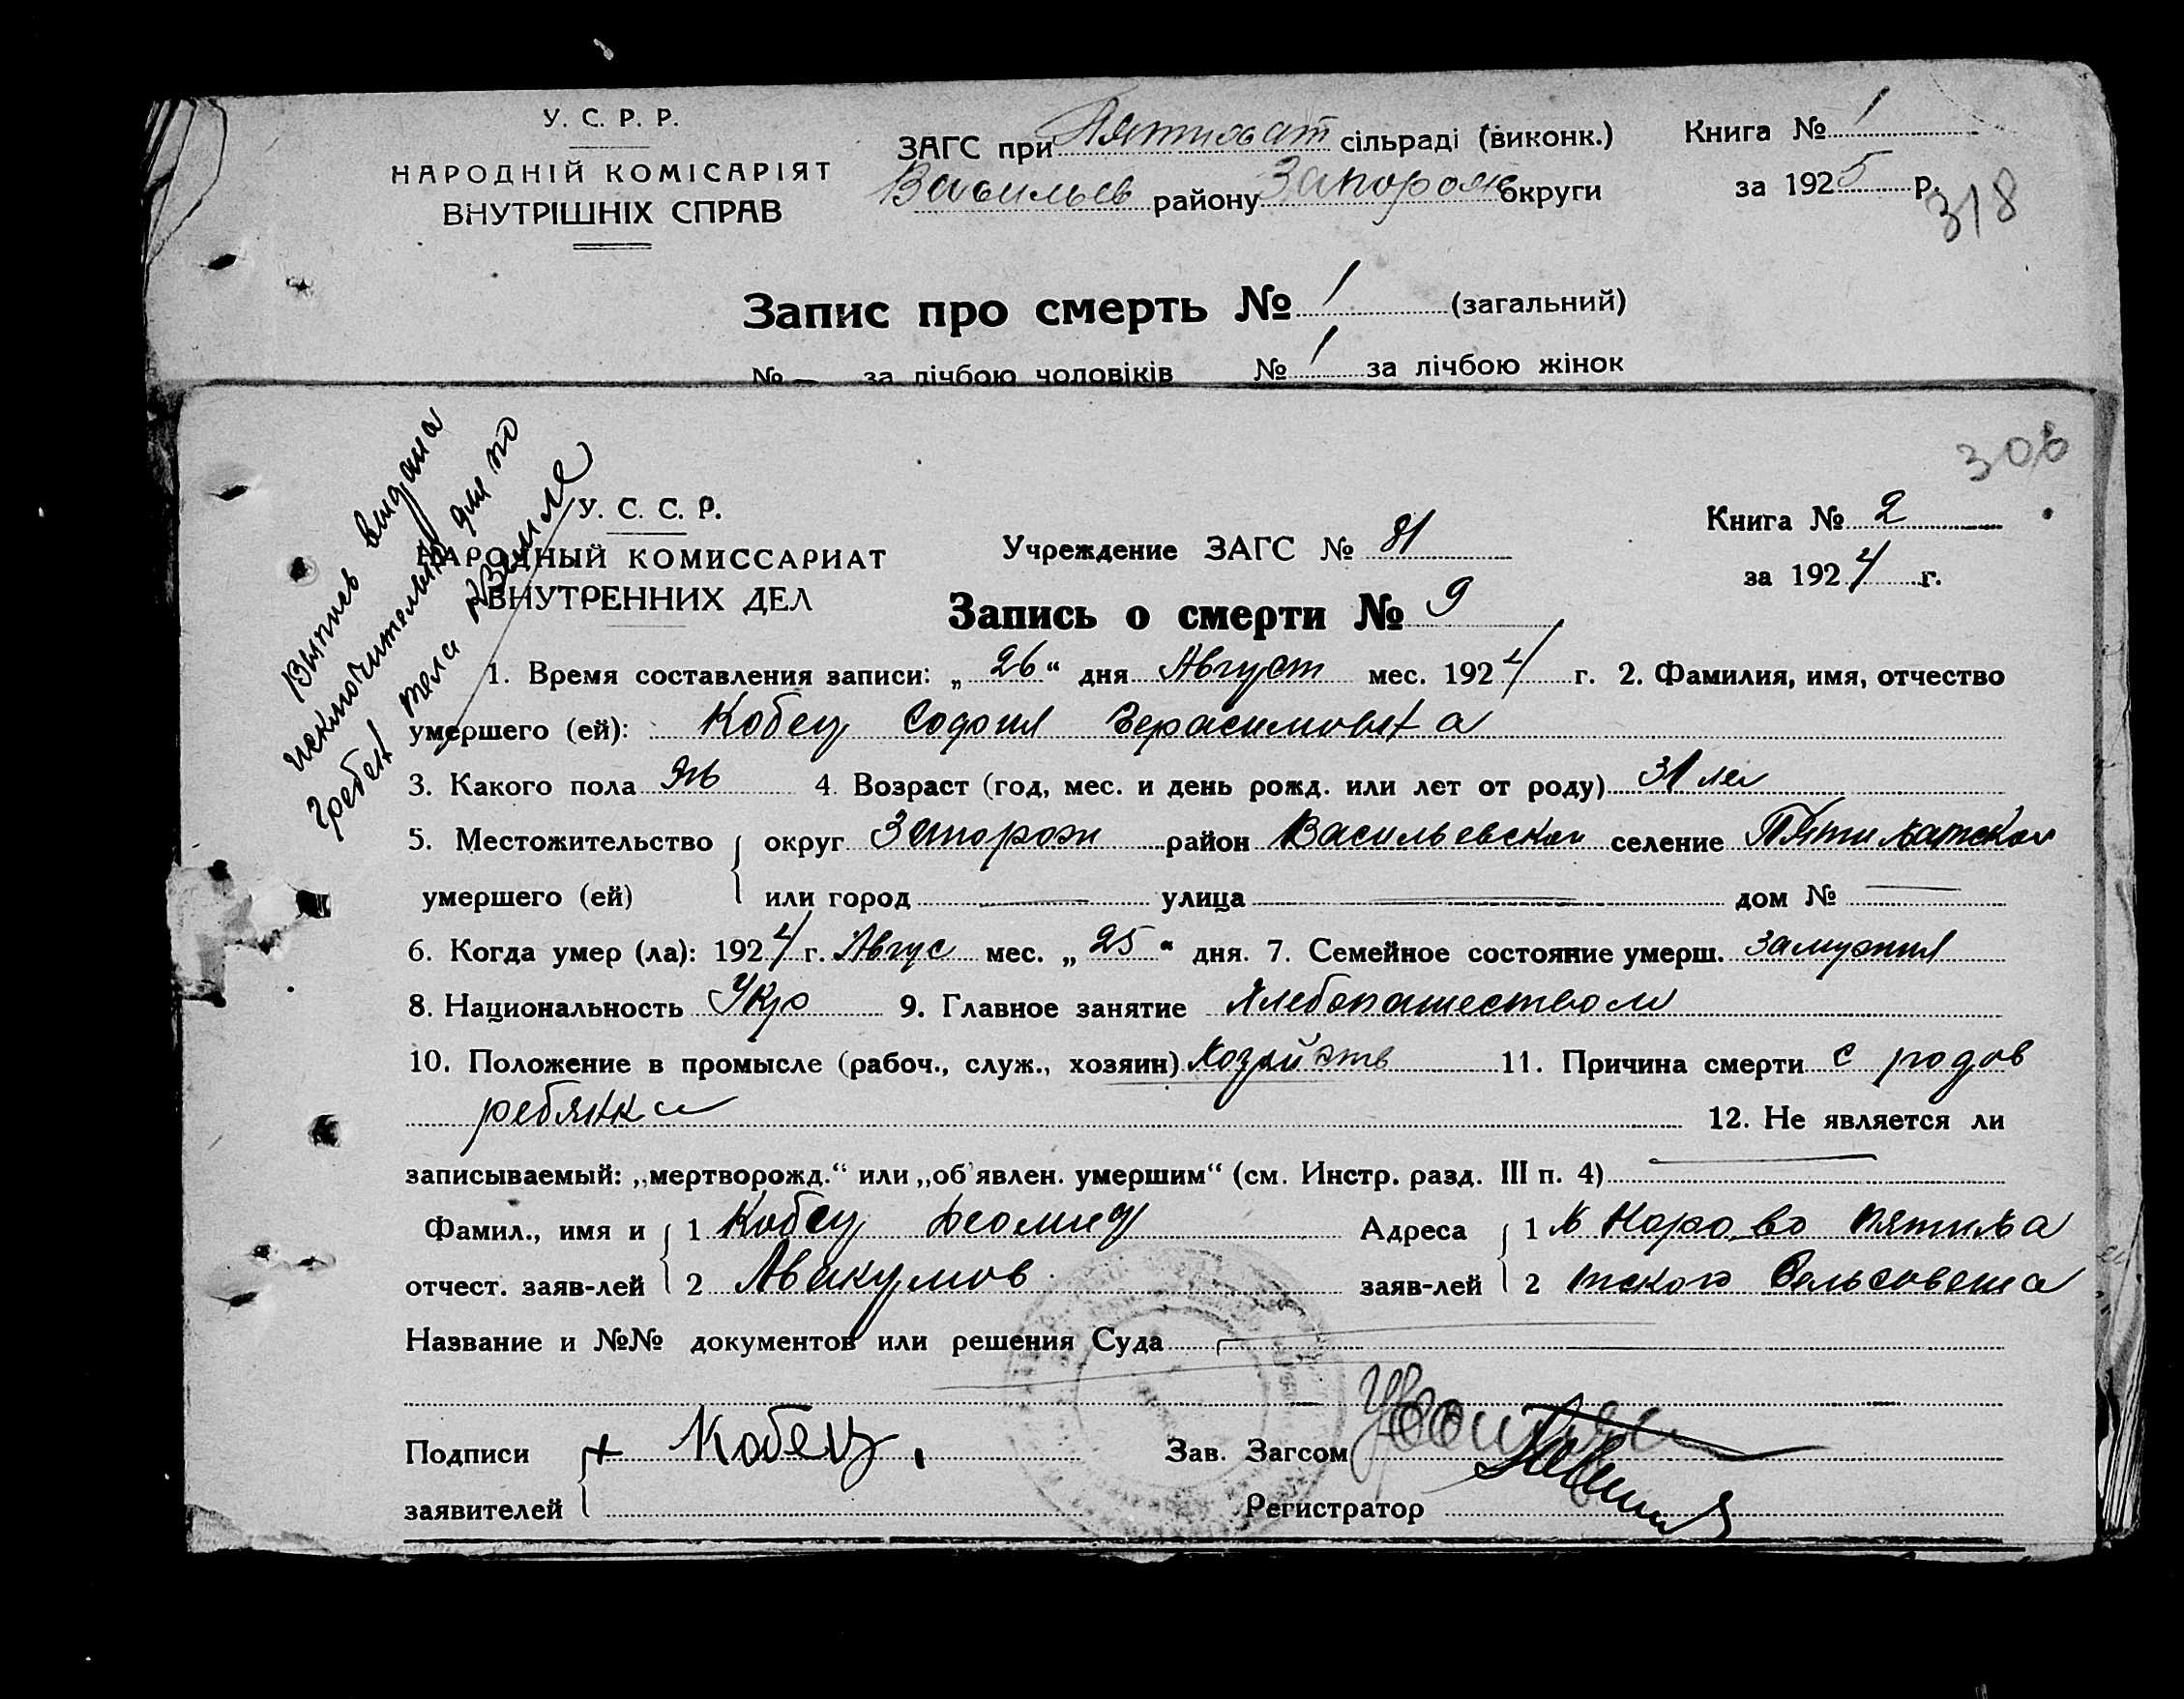 У. С. Р. Р.
НАРОДНІЙ КОМІСАРІЯТ
ВНУТРІШНІХ СПРАВ
ЗАГС при Пятихат сільраді (виконк.)
Васильев району Запорож округи
Книга № 1
за 1925 р.
318
Запис про смерть № 1 (загальний)
№ — за лічбою чоловіків № 1 за лічбою жінок
306
Выпись выдана
исключительно для по
гребен тела в земле
У. С. С. Р.
НАРОДНЫЙ КОМИССАРИАТ
ВНУТРЕННИХ ДЕЛ
Учреждение ЗАГС № 81
Книга № 2
за 1924 г.
Запись о смерти № 9
1. Время составления записи: „26“ дня Август мес. 1924 г. 2. Фамилия, имя, отчество
умершего (ей): Кобец София Герасимовна
3. Какого пола жв 4. Возраст (год, мес. и день рожд. или лет от роду) 31 лет
5. Местожительство округ Запорож район Васильевской селение Пятихатской
умершего (ей) или город — улица — дом № —
6. Когда умер (ла): 1924 г. Авгус мес. „25“ дня. 7. Семейное состояние умерш. замужня
8. Национальность Укр 9. Главное занятие Хлебопашеством
10. Положение в промысле (рабоч., служ., хозяин) Хозяйств 11. Причина смерти с родов
ребянка
12. Не является ли
записываемый: „мертворожд.“ или „об'явлен. умершим“ (см. Инстр. разд. III п. 4) —
Фамил., имя и 1 Кобец Деомид Адреса 1 во Пятиха
отчест. заяв-лей 2 Авакумов заяв-лей 2 тского Сельсовета
Название и №№ документов или решения Суда
Подписи + Кобец Зав. Загсом
заявителей Регистратор